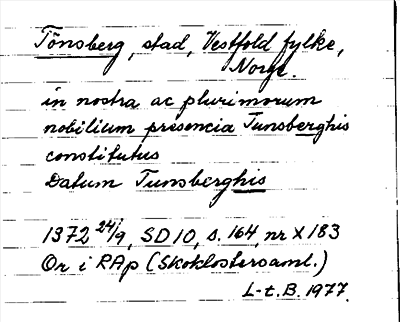 Tönsberg, stad, Vestfold fylke,
Norge.
in nostra ac plurimorum
nobilium presencia Tunsberghis
constitutus
Datum Tunsberghis
1372 24/9, SD 10, s. 164, nr X 183
Or i RAp (Skoklostersaml.)
L-t. B. 1977.